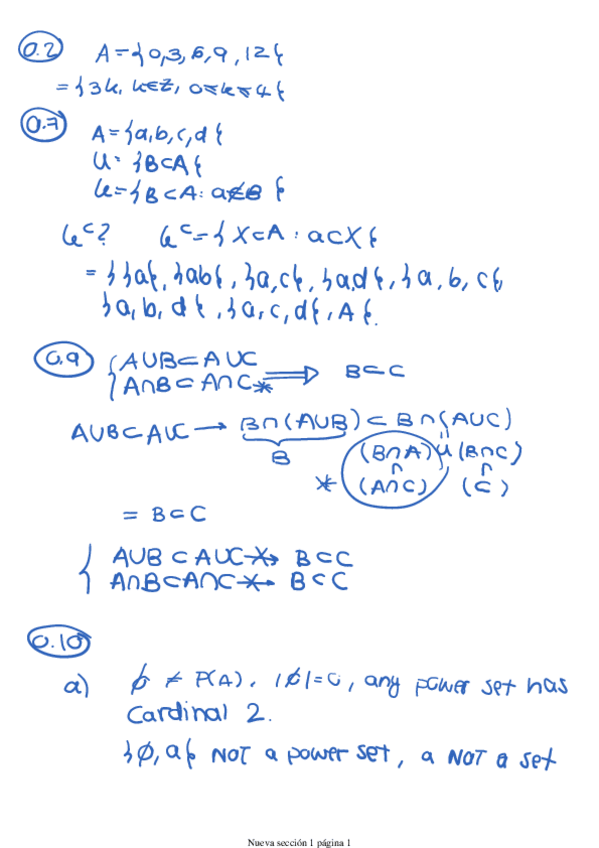 0.2 A={0,3,6,9,12}
={3k, k∈Z, 0≤k≤4}
0.7 A={a,b,c,d}
U={B⊂A}
U={B⊂A: a∉B}
U^c? U^c={X⊂A : a⊂X}
={{a}, {ab}, {a,c}, {a,d}, {a,b,c},
{a,b,d}, {a,c,d}, A}.
0.9 {A∪B⊂A∪C
{A∩B⊂A∩C* ⟹ B⊂C
A∪B⊂A∪C → B∩(A∪B)⊂B∩(A∪C)
B (B∩A)∪(B∩C)
* (A∩C) (C)
= B⊂C
{ A∪B⊂A∪C ↛ B⊂C
A∩B⊂A∩C ↛ B⊂C
0.10
a) ∅ ≠ P(A). |∅|=0, any power set has
Cardinal 2.
{∅,a} NOT a power set, a NOT a set
Nueva sección 1 página 1